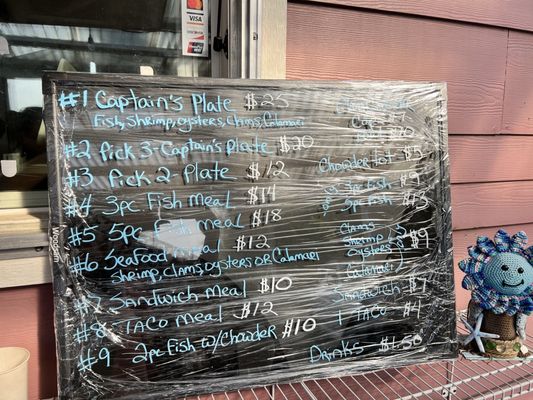 VISA
#1 Captain's Plate $25
Fish, Shrimp, oysters, Clams, Calamari
#2 Pick 3-Captain's Plate $20
#3 Pick 2-Plate $12
#4 3pc Fish Meal $14
#5 5pc Fish Meal $18
#6 Seafood Meal $12
Shrimp, Clams, oysters or Calamari
#7 Sandwich Meal $10
#8 Taco Meal $12
#9 2pc Fish w/Chowder $10
$5
3pc Fish $9
5pc Fish $13
Clams
Shrimp
Oysters $9
Calamari
Sandwich $7
1 Taco $4
Drinks $1.50